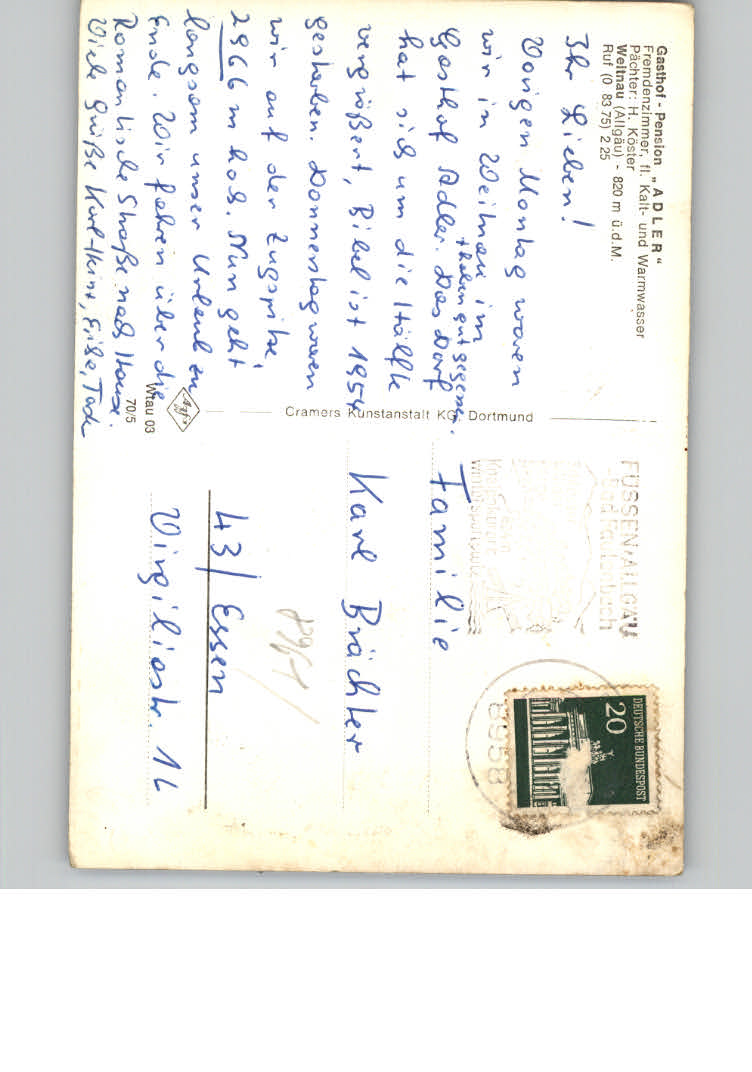 Gasthof - Pension „ADLER“
Fremdenzimmer, fl. Kalt- und Warmwasser
Pächter: H. Köster
Weitnau (Allgäu) - 820 m ü.d.M.
Ruf (0 83 75) 2 25
Ihr Lieben!
Vorigen Montag waren
wir in Weitnau im
+ haben gut gegessen.
Gasthof Adler. Das Dorf
hat sich um die Hälfte
vergrößert, Bibel ist 1954
gestorben. Donnerstag waren
wir auf der Zugspitze,
2966 m hoch. Nun geht
langsam unser Urlaub zu
Ende. Wir fahren über die
Romantische Straße nach Hause.
Viele Grüße Karl-Heinz,
Wtau 03
70/5
Agfa
Cramers Kunstanstalt KG, Dortmund
FÜSSEN/ALLGÄU
Bad Faulenbach
Wintersportplatz
8958
DEUTSCHE BUNDESPOST
20
Familie
Karl Brächter
43/ Essen
Virgiliastr. 16